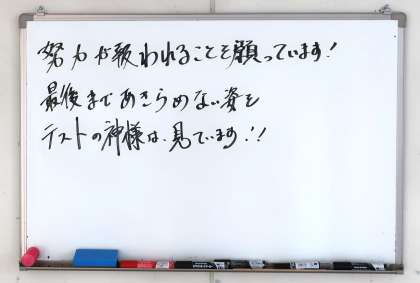 努力が報われることを願っています!
最後まであきらめない姿を
テストの神様は、見ています!!